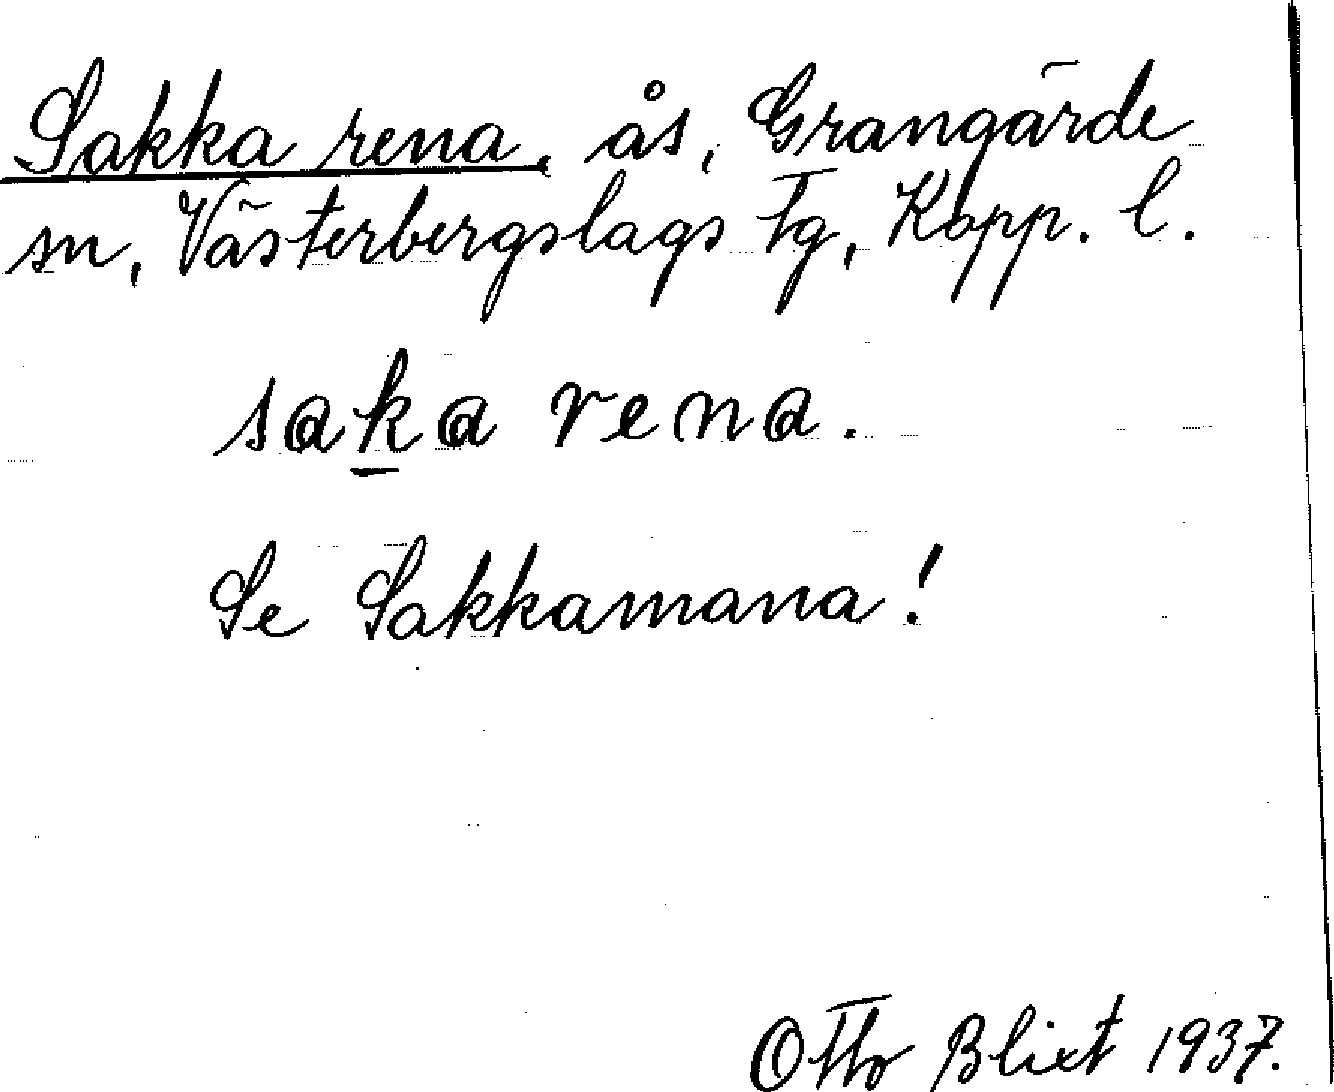 Sakka rena, ås, Grangärde
sn, Västerbergslags tg, Kopp. l.
saka rena.
Se Sakkamana!
Otto Blixt 1937.